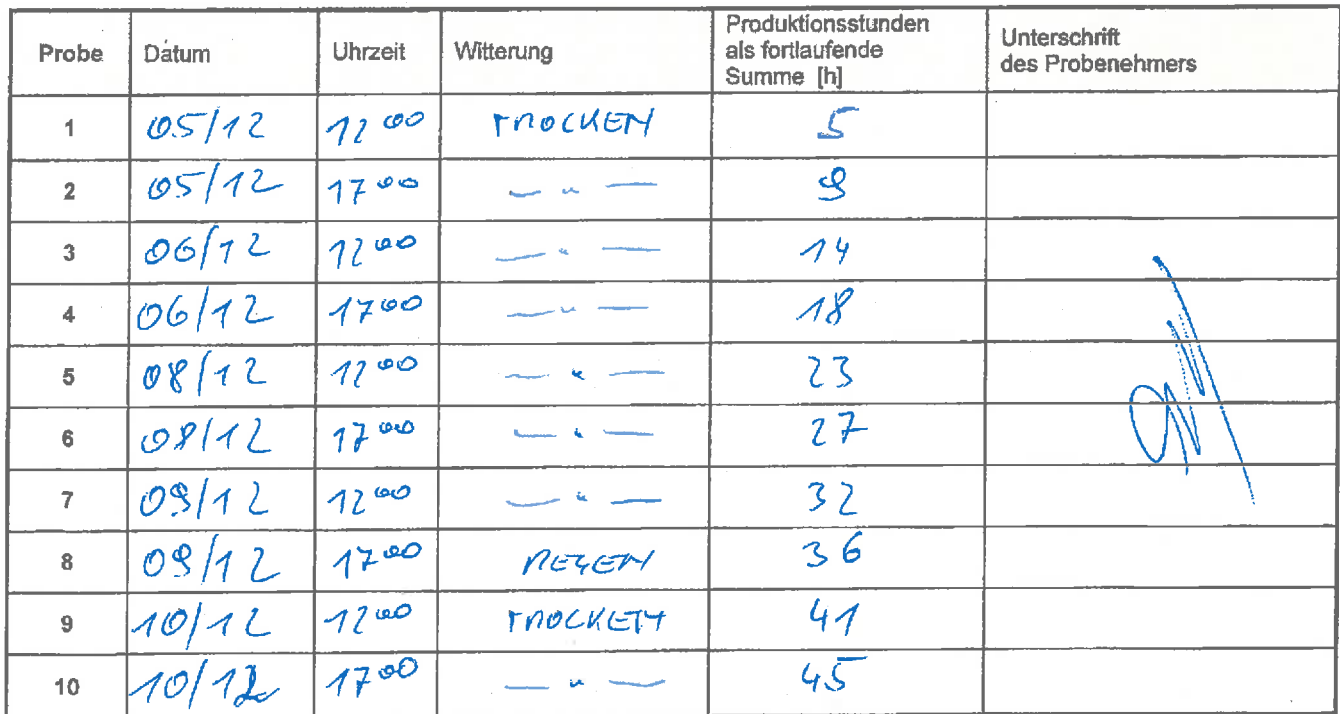 Probe Datum Uhrzeit Witterung Produktionsstunden als fortlaufende Summe [h] Unterschrift des Probenehmers
1 05/12 12 00 TROCKEN 5
2 05/12 17 00 — " — 9
3 06/12 12 00 — " — 14
4 06/12 17 00 — " — 18
5 08/12 12 00 — " — 23
6 08/12 17 00 — " — 27
7 09/12 12 00 — " — 32
8 09/12 17 00 REGEN 36
9 10/12 12 00 TROCKEN 41
10 10/12 17 00 — " — 45